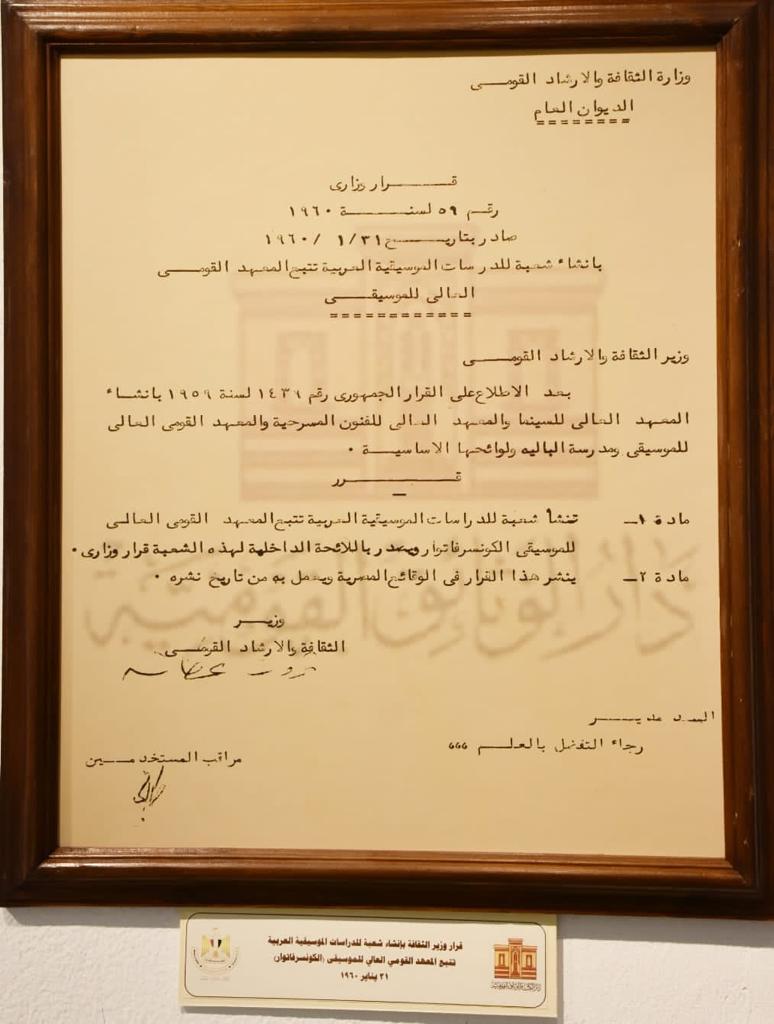 وزارة الثقافة والارشاد القومى
الديوان العام
قرار وزارى
رقم ٥٩ لسنة ١٩٦٠
صادر بتاريخ ١/٣١ /١٩٦٠
بانشاء شعبة للدراسات الموسيقية العربية تتبع المعهد القومى
العالى للموسيقى
وزير الثقافة والارشاد القومى
بعد الاطلاع على القرار الجمهورى رقم ١٤٣٩ لسنة ١٩٥٩ بانشاء
المعهد العالى للسينما والمعهد العالى للفنون المسرحية والمعهد القومى العالى
للموسيقى ومدرسة الباليه ولوائحها الاساسية ٠
قرر
مادة ١ــ تنشأ شعبة للدراسات الموسيقية العربية تتبع المعهد القومى العالى
للموسيقى الكونسرفاتوار ويصدر باللائحة الداخلية لهذه الشعبة قرار وزارى ٠
مادة ٢ــ ينشر هذا القرار فى الوقائع المصرية ويعمل به من تاريخ نشره ٠
وزير
الثقافة والارشاد القومى
ثروت عكاشه
السيد مدير
رجاء التفضل بالعلم ،،،
مراقب المستخدمين
دار الوثائق القومية
قرار وزير الثقافة بإنشاء شعبة للدراسات الموسيقية العربية
تتبع المعهد القومي العالي للموسيقى (الكونسرفاتوار)
٣١ يناير ١٩٦٠